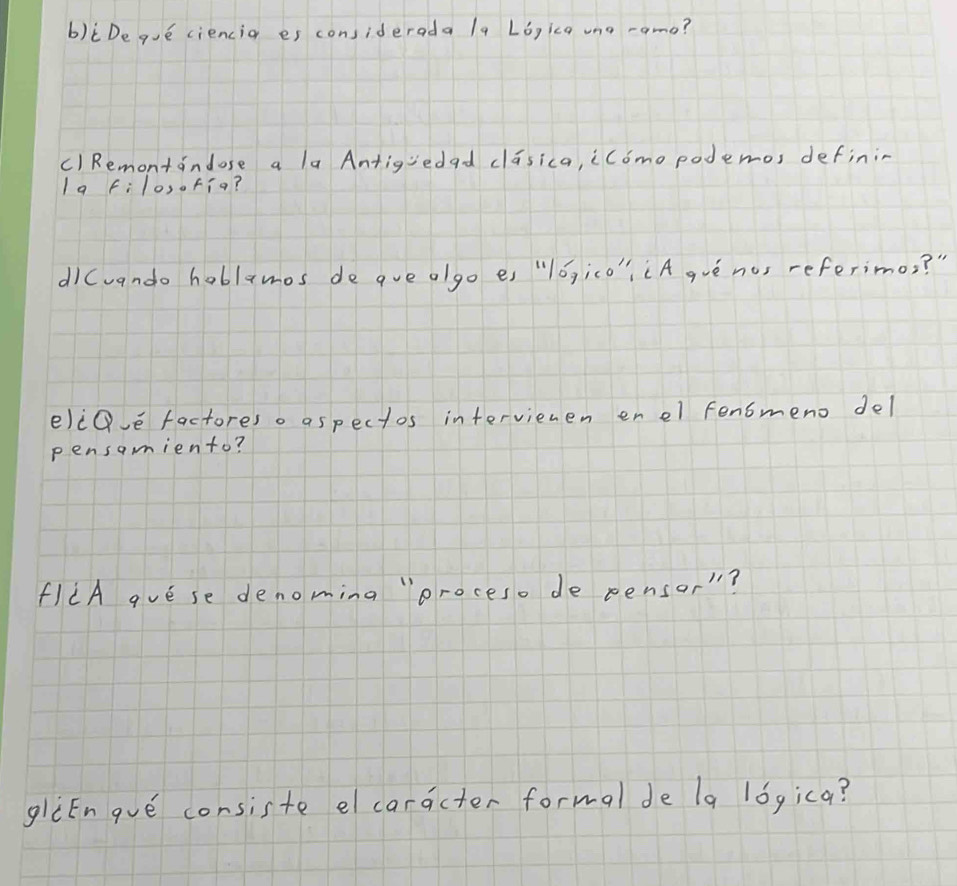 b)¿De qué ciencia es considerada la Lógica una ramo?
c) Remontándose a la Antigüedad clásica, ¿Cómo podemos definir
la Filosofía?
d) Cuando hablamos de que algo es "lógico", ¿A qué nos referimos?"
e)¿Qué factores o aspectos intervienen en el fenómeno del
pensamiento?
f)¿A qué se denomina "proceso de pensar"?
g)¿En qué consiste el carácter formal de la lógica?